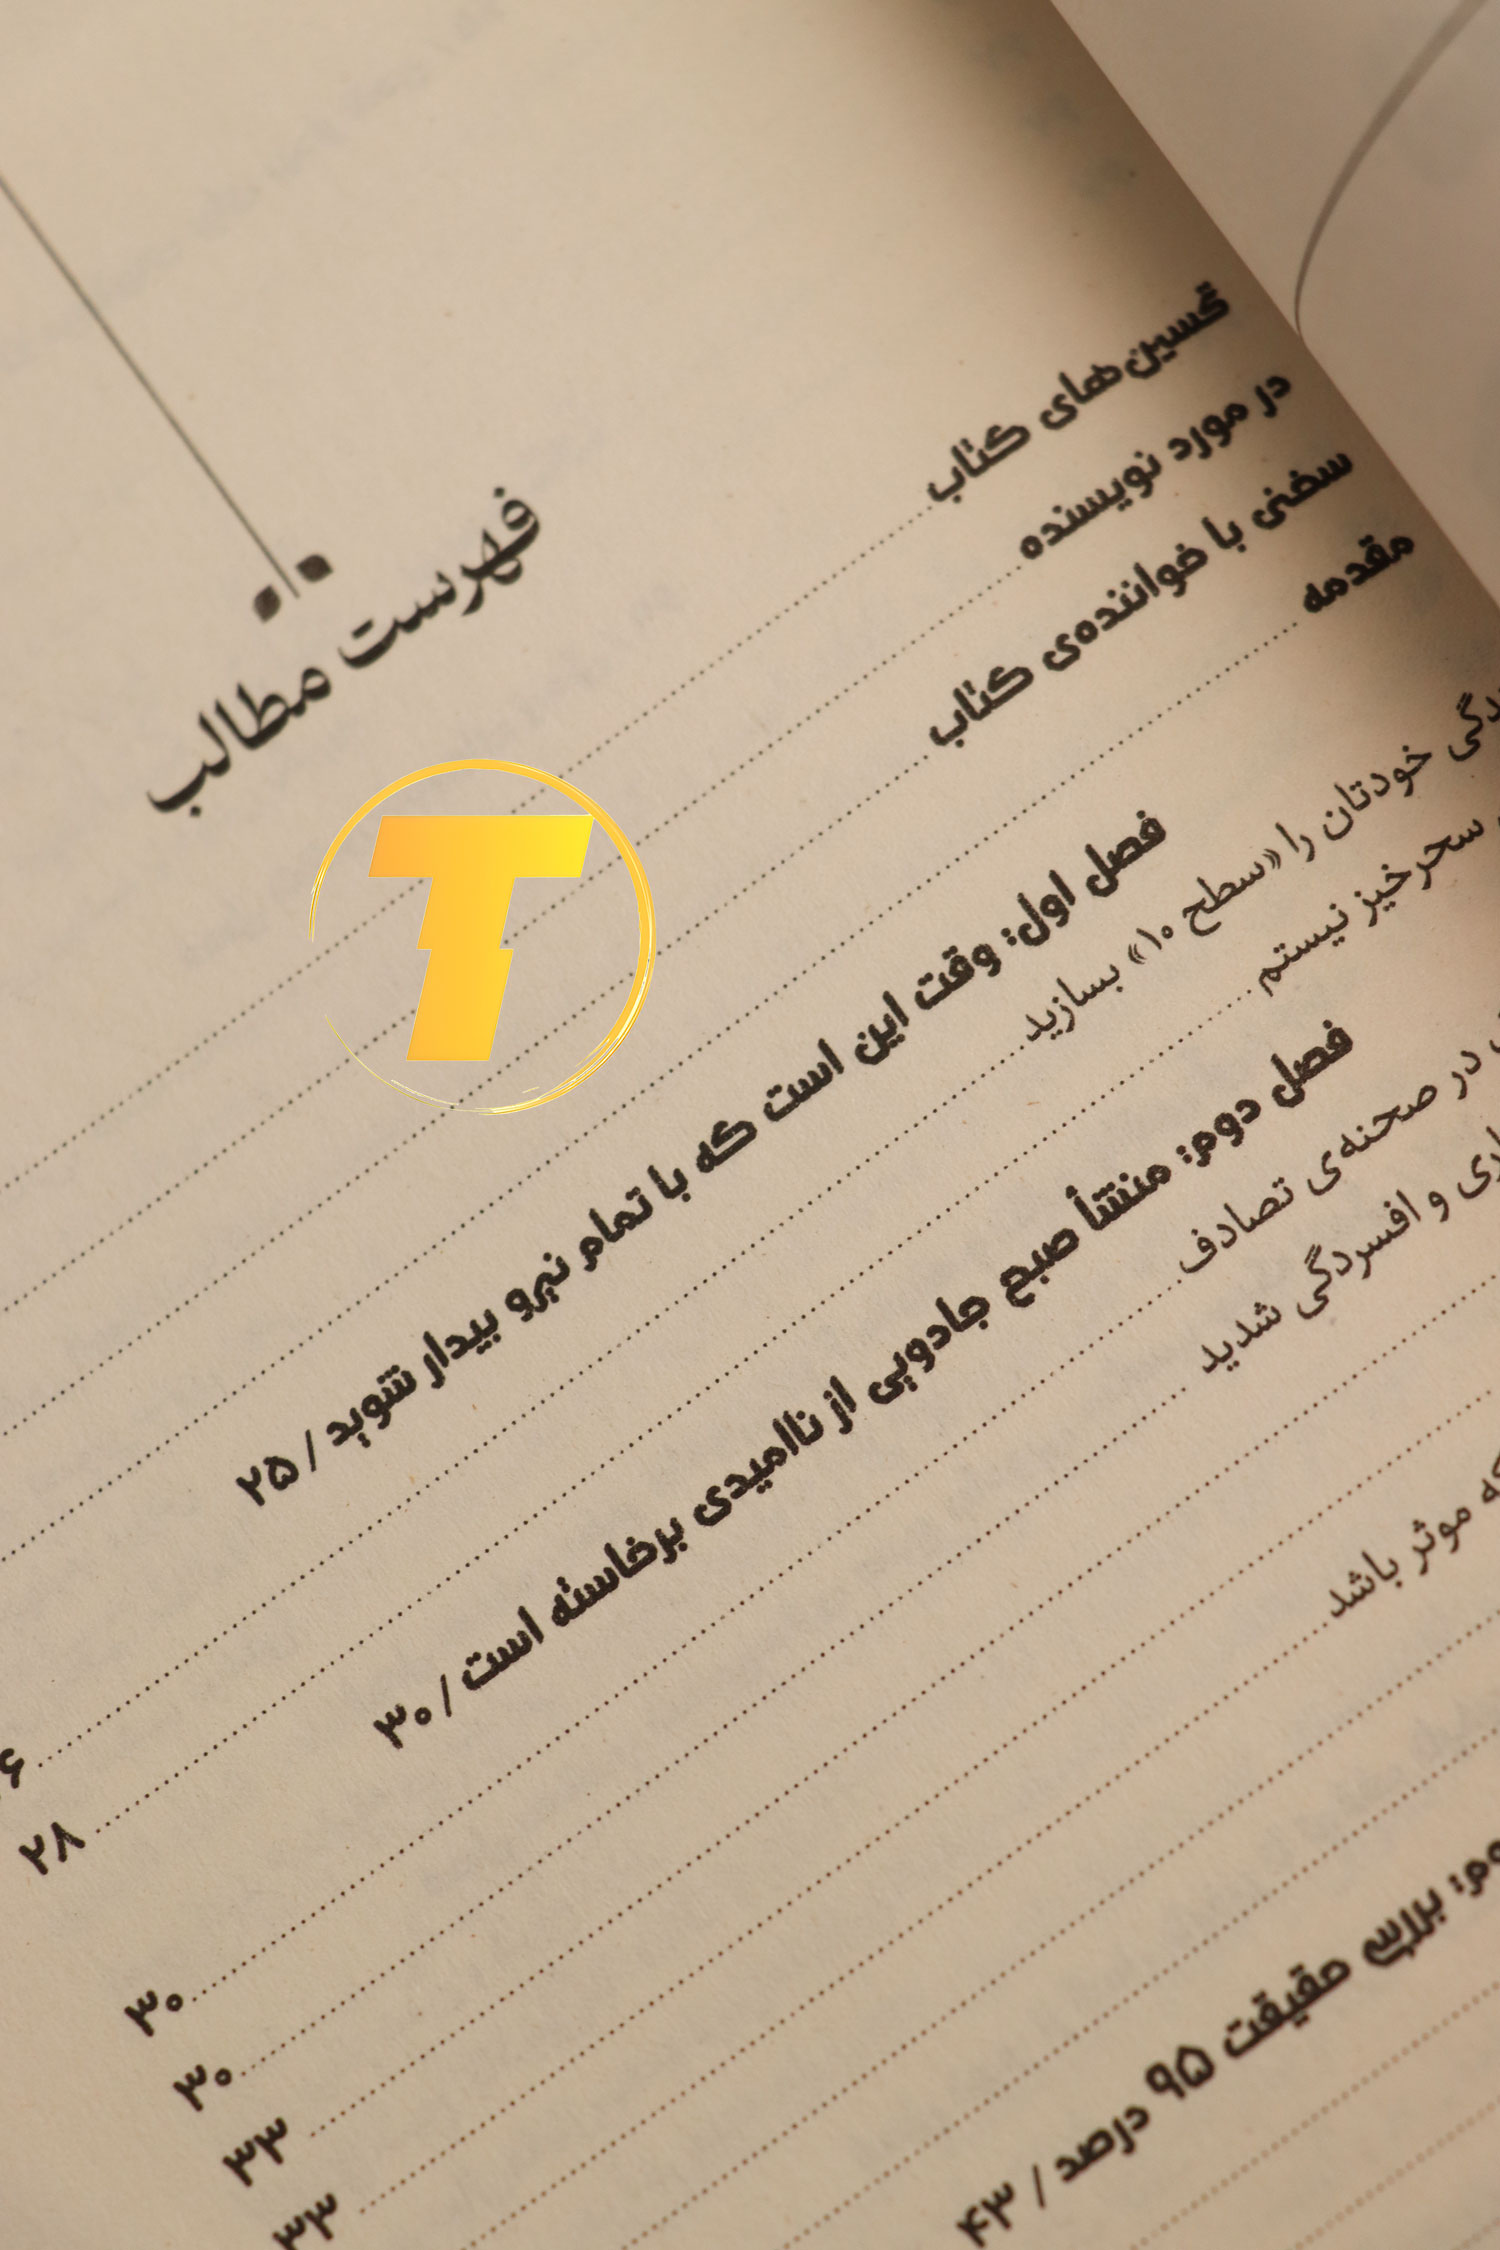 فهرست مطالب
تحسین‌های کتاب
در مورد نویسنده
سخنی با خواننده‌ی کتاب
مقدمه
فصل اول: وقت این است که با تمام نیرو بیدار شوید / ۲۵
خودتان را «سطح ۱۰» بسازید
سحرخیز نیستم ۲۸
فصل دوم: منشأ صبح جادویی از ناامیدی برخاسته است / ۳۰
در صحنه‌ی تصادف ۳۰
و افسردگی شدید ۳۰
۳۳
که موثر باشد ۳۳
بررسی حقیقت ۹۵ درصد / ۴۳
T